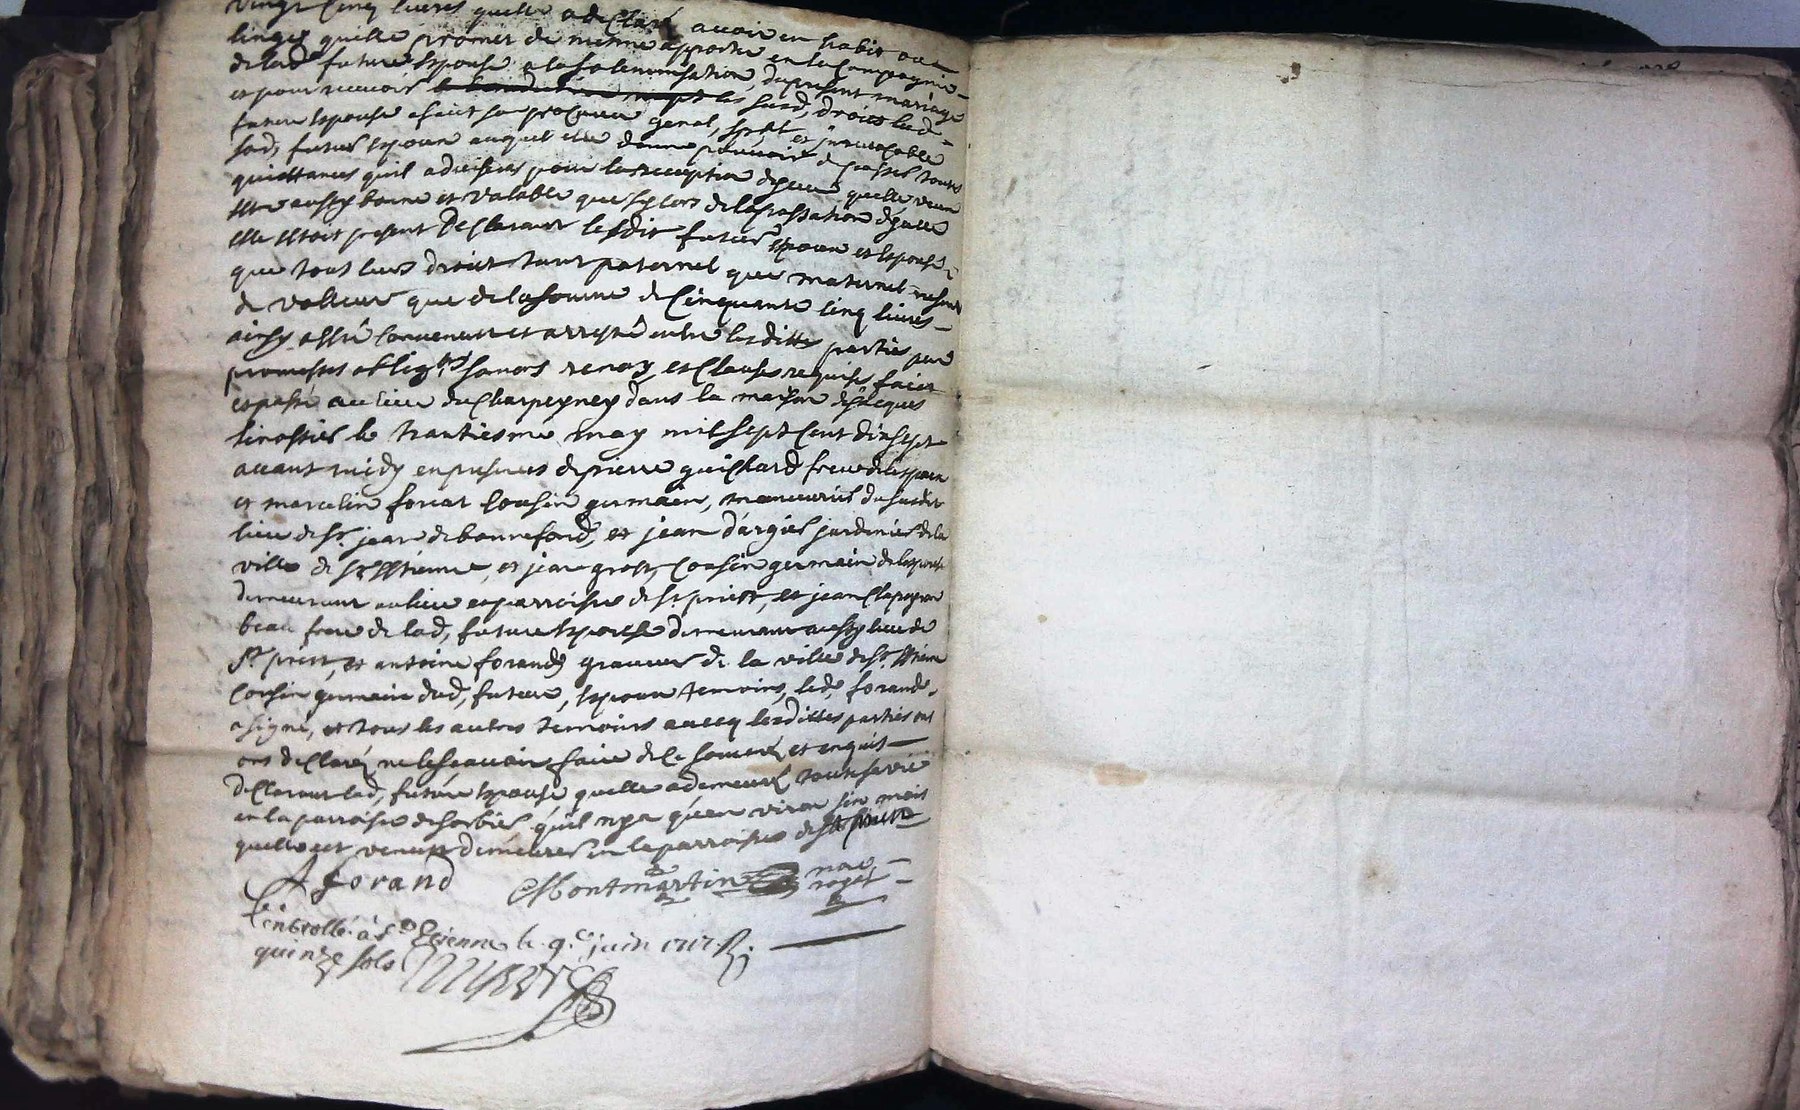 vingt cinq livres quelle a declaré avoir en habit ou
linges quelle promet de mesme apporter en la compagnie
de lad. futur espoux a la solemnisation du present mariage
et pour recevoir les susd. droits lad.
future espouse a fait son procureur genal, spal et irrevocable
sond. futur espoux auquel elle donne pouvoir de passer toutes
quittances quil advisera pour la reception diceux quelle veut
estre aussy bonne et valable que sy lors de la passation dicelle
elle estoit presente declarant lesdit futur espoux et espouse
que tous leurs droits tant paternel que maternel ne sont
de valleur que de la somme de cinquante cinq livres
ainsy a esté convenu et arresté entre lesdittes parties par
promesses obligons sermens renon. et clauses requises faict
et passé au lieu de Charpeyney dans la maison de Jacques
linossier le trantiesme may mil sept cent dixsept
avant midy en presences de pierre guichard frere de lespoux
et marcelin foriat cousin germain, manuvriers du susdit
lieu de st. jean de bonnefond, et jean dargier jardinier de la
ville de st. estienne, et jean gros cousin germain de lespouse
demeurant au lieu et parroisse de st. priest, et jean Clapeyron
beau frere de lad. future espouse demeurant aussy lieu de
st. priest, et antoine forand graveur de la ville de st. estienne
cousin germain dud. futur espoux temoins, led. forand
a signé, et tous les autres temoins avecq lesdittes parties ont
ont declaré ne le scavoir faire de ce sommé et enquis
declarant lad. future espouse quelle a demeuré toute sa vie
en la parroisse de sorbier quil nya quenviron six mois
quelle est venue demeurer en la parroisse de st. priest
A forand Montmartin
Controllé à st. Estienne le 9e juin 1717 R
quinze sols